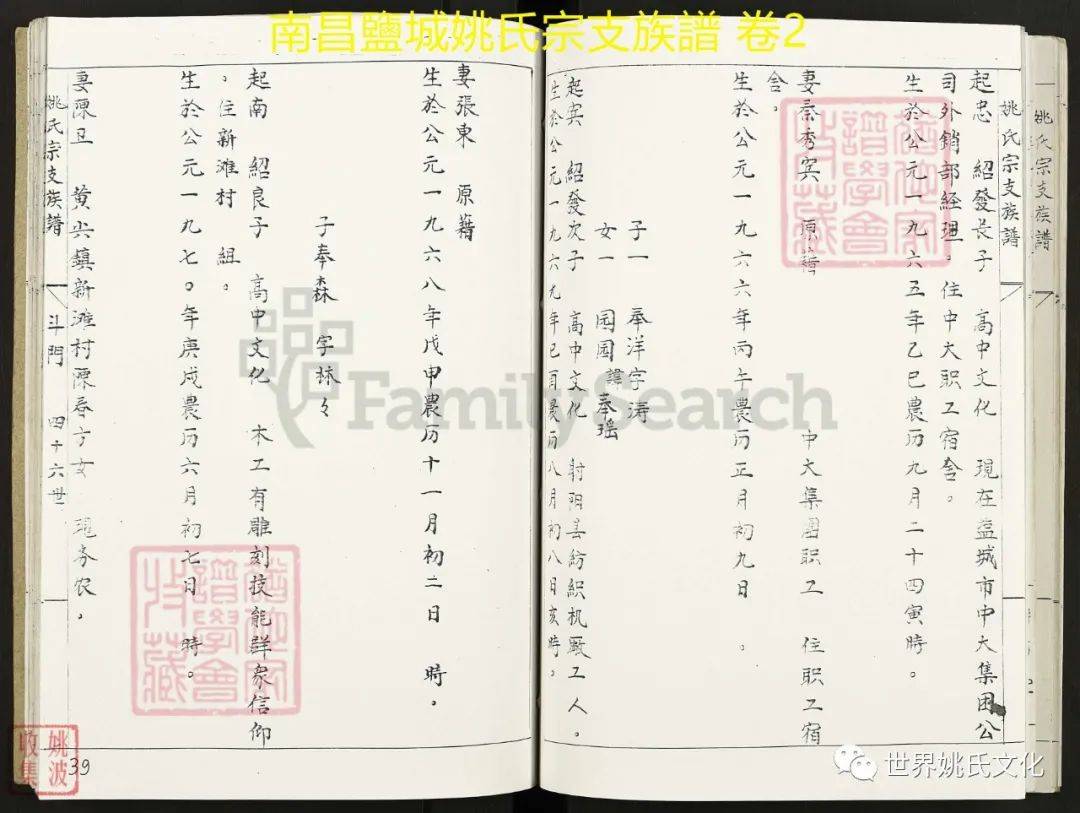 南昌鹽城姚氏宗支族譜 卷2
姚氏宗支族譜
姚氏宗支族譜
起忠 紹發长子 高中文化 現在盐城市中大集团公
司外銷部经理。住中大职工宿舍。
生於公元一九六五年乙巳農历九月二十四寅時。
妻秦秀宾 原籍 中大集團职工 住职工宿
舍。
生於公元一九六六年丙午農历正月初九日 。
子一 奉洋字涛
女一 园园諱奉瑶
起宾 紹發次子 高中文化 射阳县紡織机厰工人。
生於公元一九六九年己酉農历八月初八日亥時。
妻張東 原籍
生於公元一九六八年戊申農历十一月初二日 時。
子奉森 字林々
起南 紹良子 高中文化 木工有雕刻技能群眾信仰
。住新滩村 組。
生於公元一九七〇年庚戌農历六月初七日 時。
妻陳 黄尖鎮新滩村陳春方女 現务农。
姚氏宗支族譜 斗門 四十六世
39
姚波
收集
譜學會
收藏
譜學會
收藏
FamilySearch
世界姚氏文化